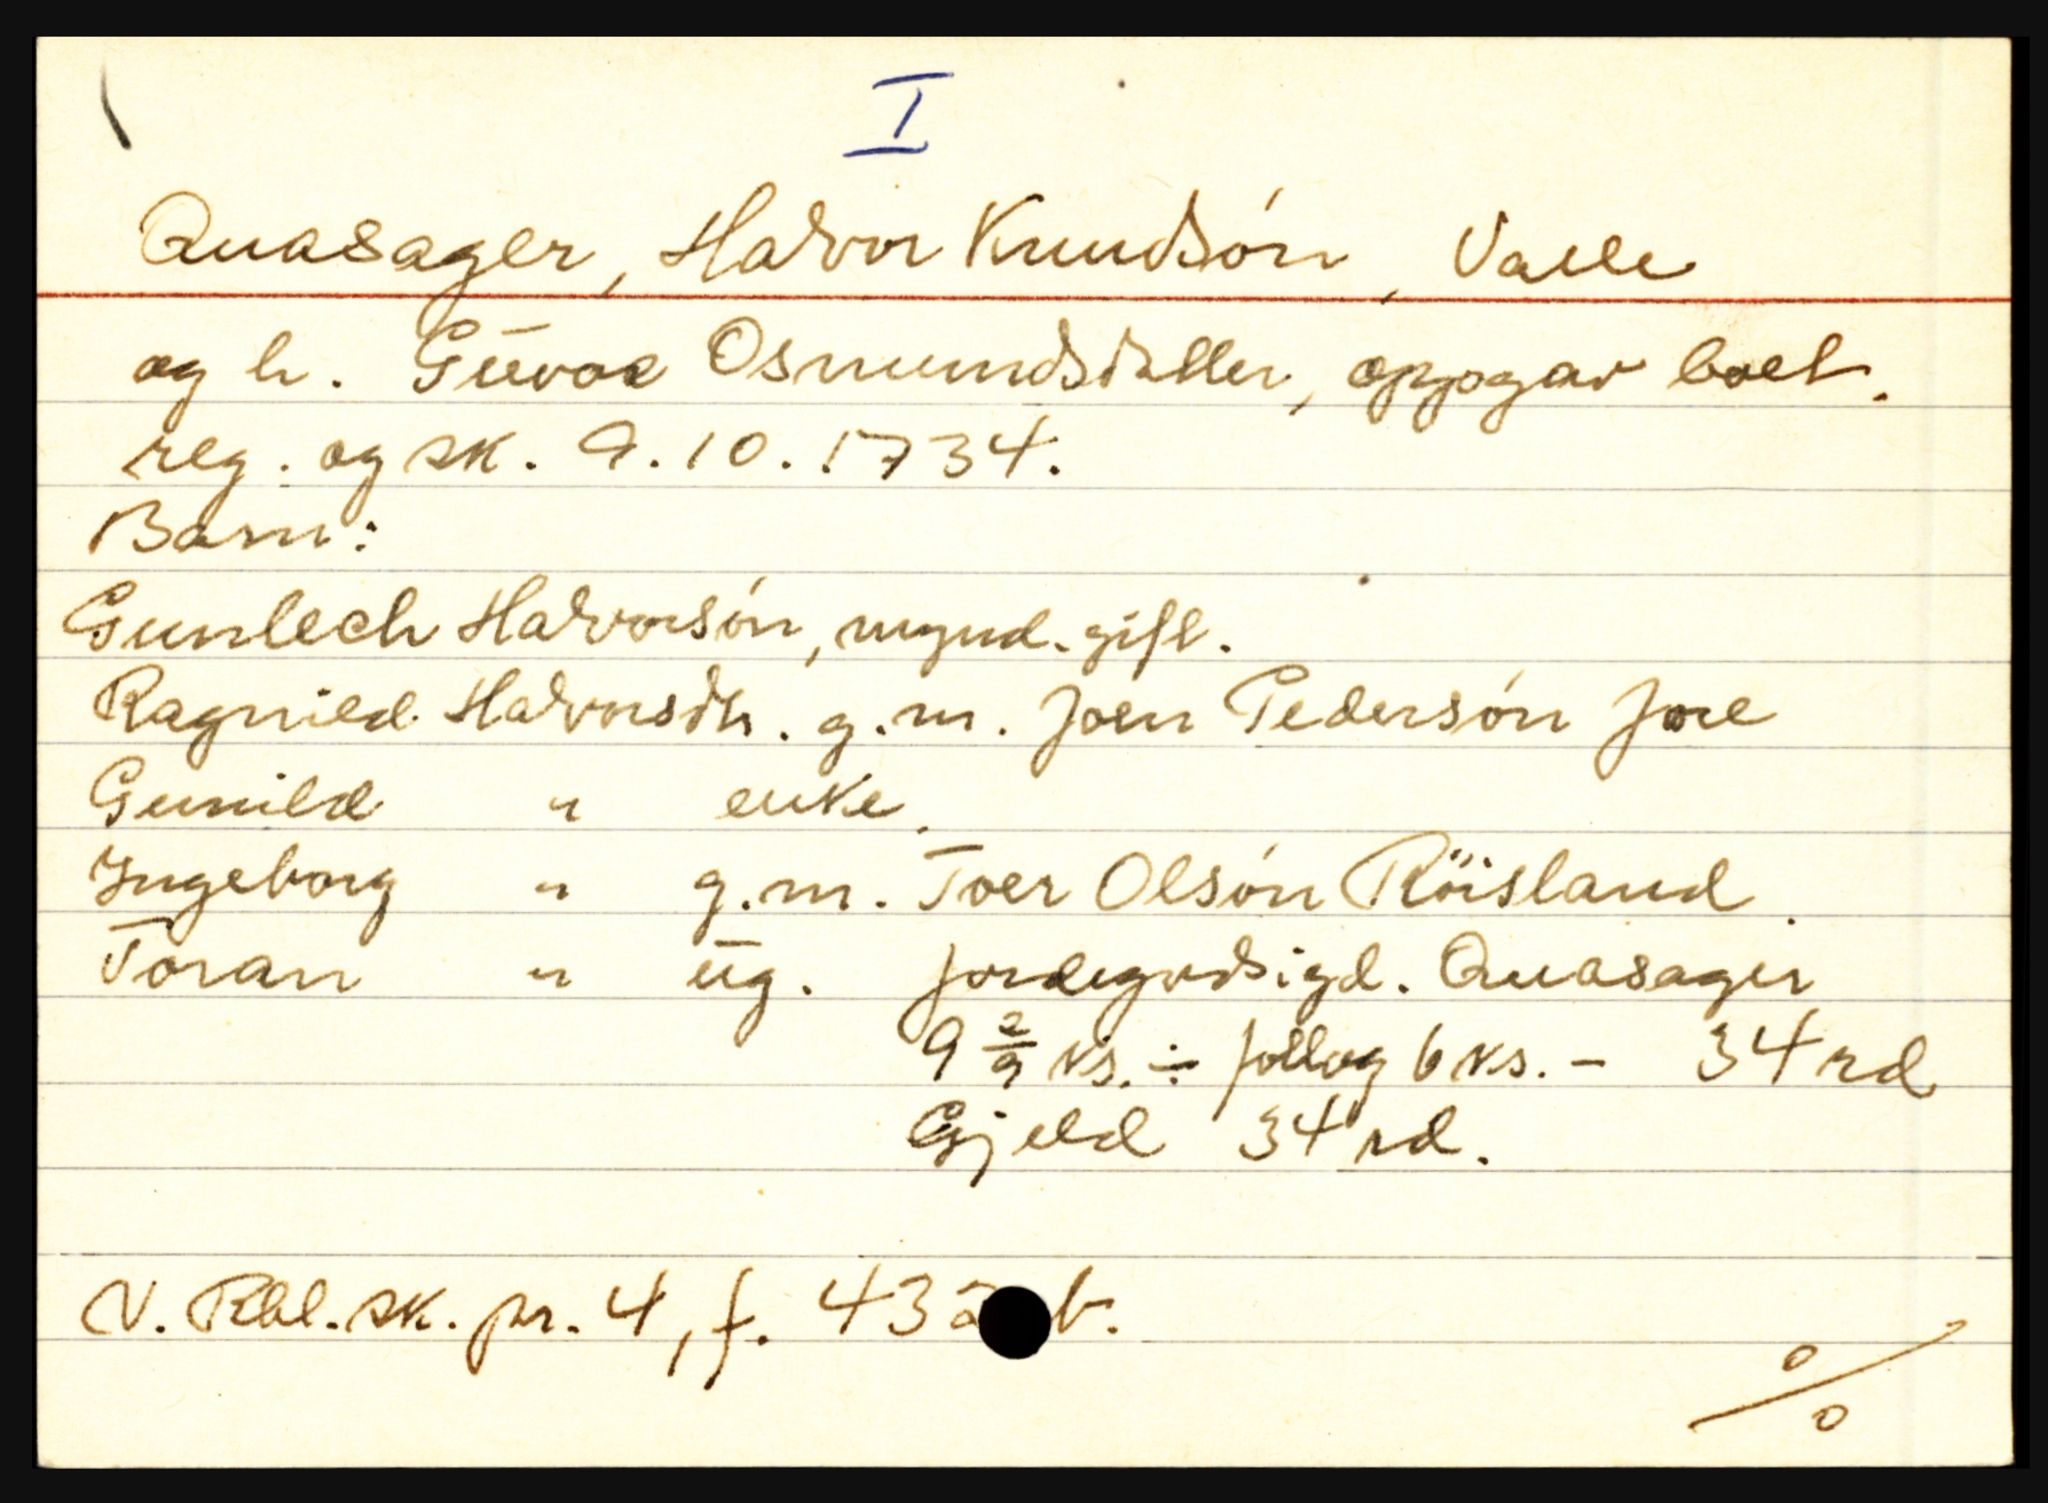 I
Quasager, Halvor Knudsón, Valle
og h. Gŭvor Osmundsdatter, oppgav boet.
reg. og sk. 9.10.1734.
Barn:
Gunlech Halvorsón, mynd. gift.
Ragnild Halvorsdtr. g.m. Joen Pedersón Jore
Gunild " enke.
Ingeborg " g.m. Toer Olsón Röisland.
Toran " ŭg. jordegodsigd. Quasager
9 2/9 ks. ÷ follog 6 ks. - 34 rd
Gjeld 34 rd.
V. Rbl. sk. pr. 4, f. 43 b.
%